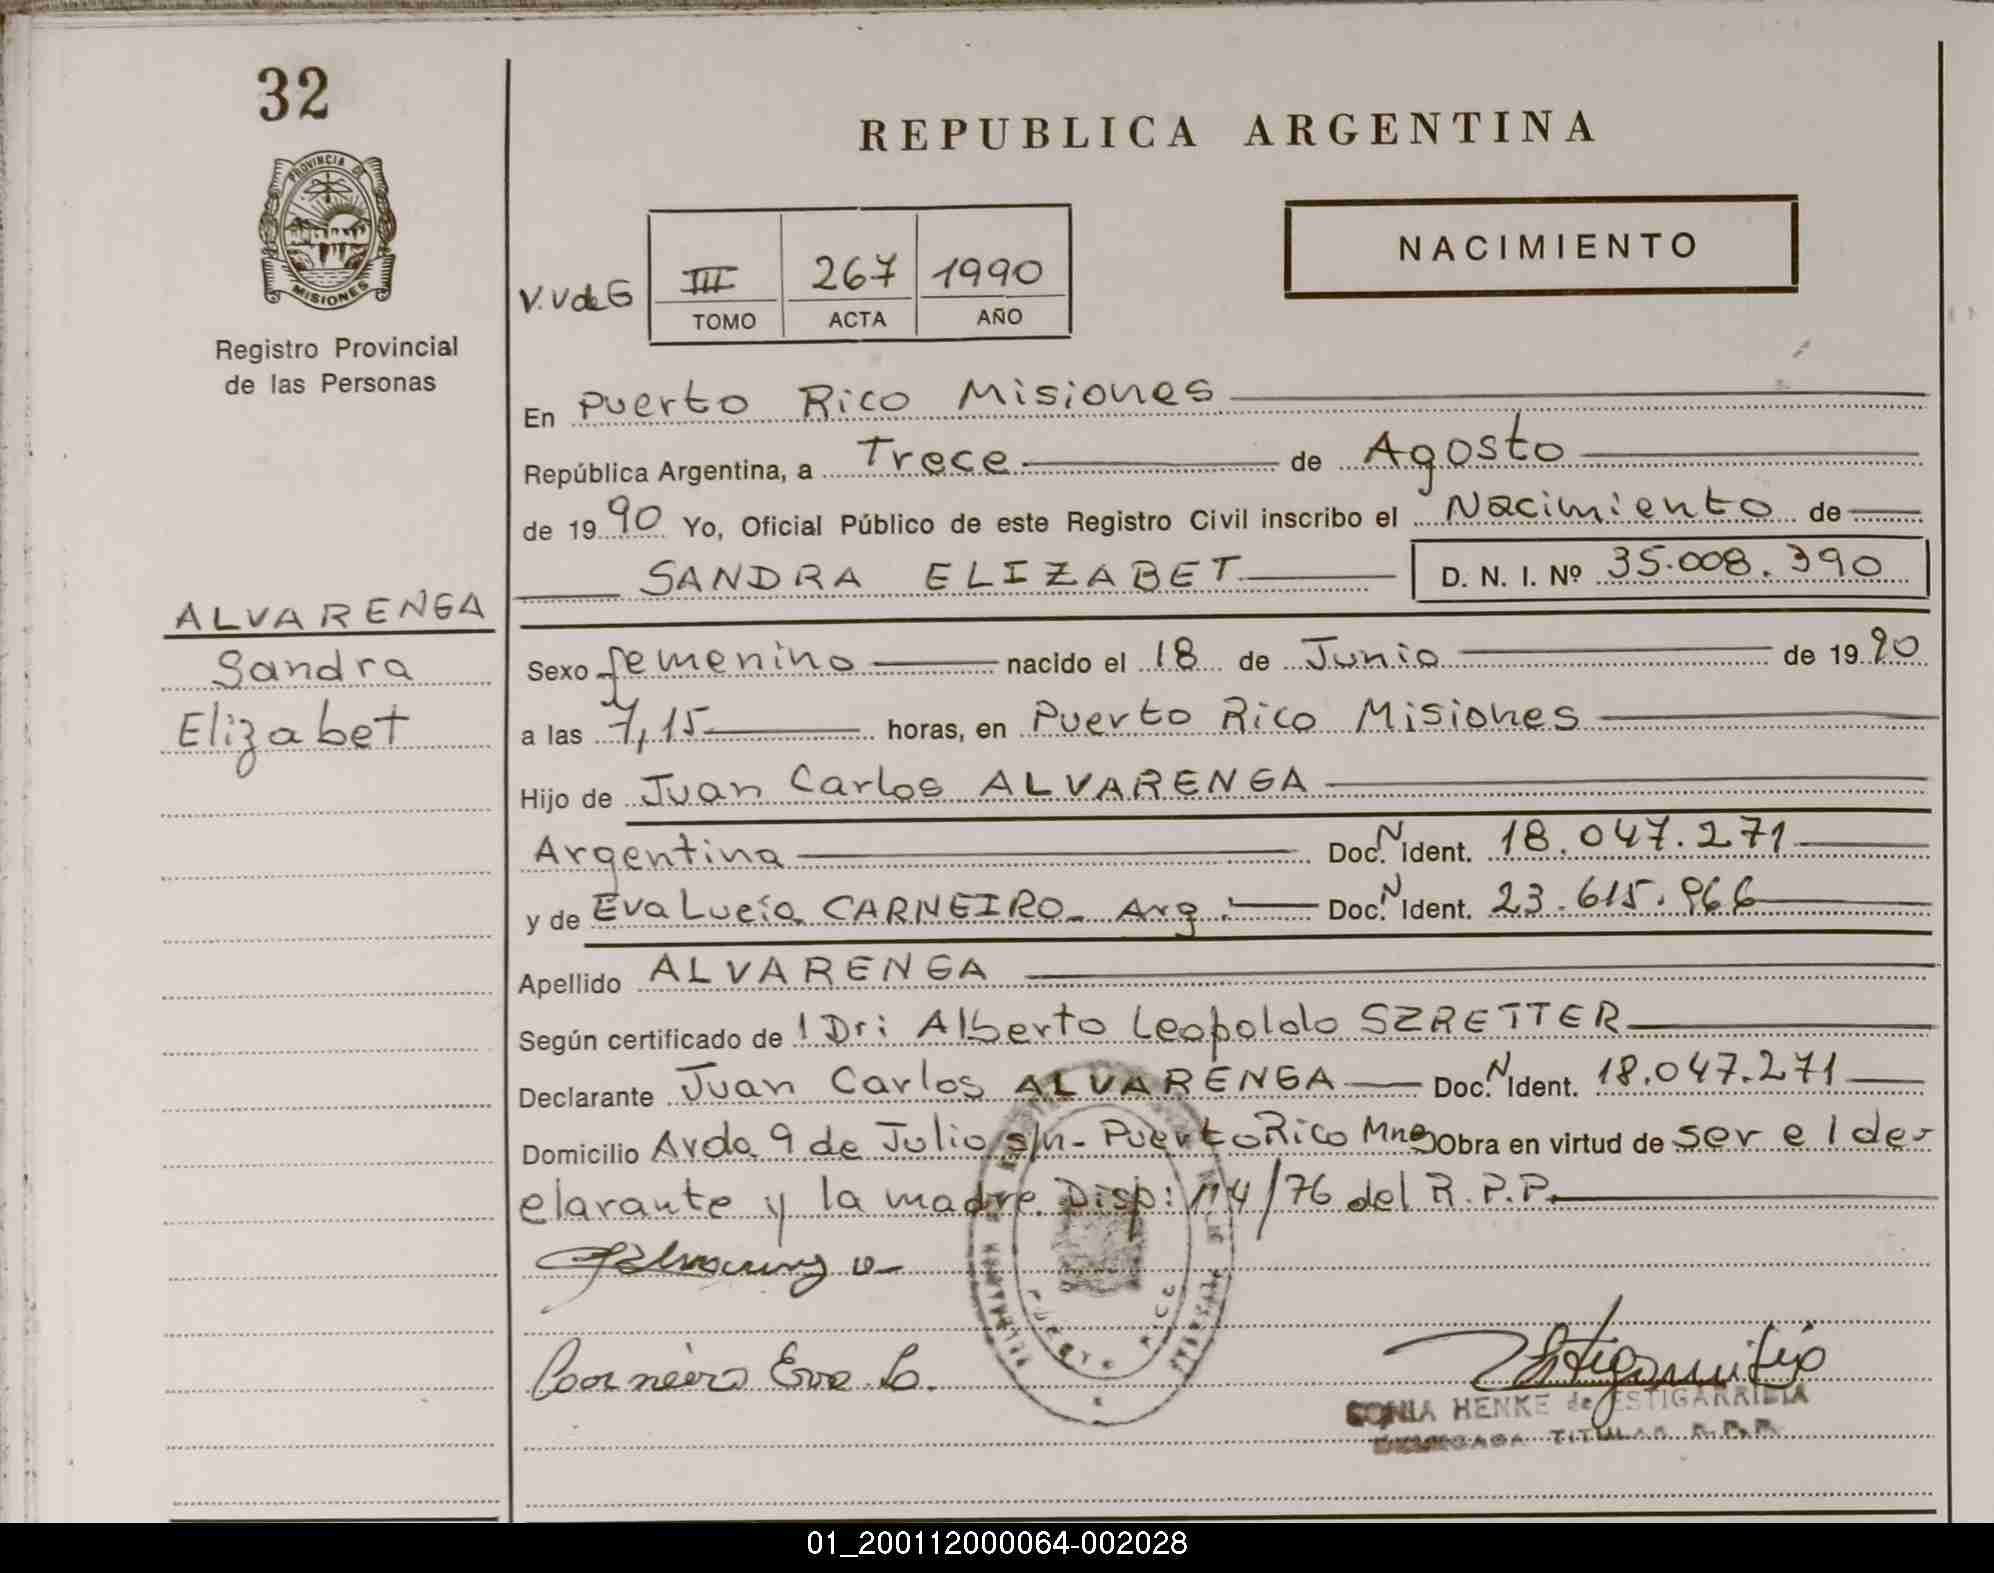 32
PROVINCIA DE
MISIONES
Registro Provincial
de las Personas
ALVARENGA
Sandra
Elizabet
REPUBLICA ARGENTINA
NACIMIENTO
V.V de G
III 267 1990
TOMO ACTA AÑO
En Puerto Rico Misiones
República Argentina, a Trece de Agosto
de 1990 Yo, Oficial Público de este Registro Civil inscribo el Nacimiento de
SANDRA ELIZABET D. N. I. Nº 35.008.390
Sexo femenino nacido el 18 de Junio de 1990
a las 7,15 horas, en Puerto Rico Misiones
Hijo de Juan Carlos ALVARENGA
Argentina Doc. N Ident. 18.047.271
y de Eva Lucía CARNEIRO Arg. Doc. N Ident. 23.615.966
Apellido ALVARENGA
Según certificado de l Dr: Alberto Leopoldo SZRETTER
Declarante Juan Carlos ALVARENGA Doc. N Ident. 18.047.271
Domicilio Avda 9 de Julio s/n - Puerto Rico Mnes Obra en virtud de ser el de-
clarante y la madre. Disp: 114/76 del R.P.P.
Carneiro Eva L.
PUERTO RICO
SONIA HENKE de ESTIGARRIBIA
DELEGADA TITULAR R.P.P.
01_200112000064-002028